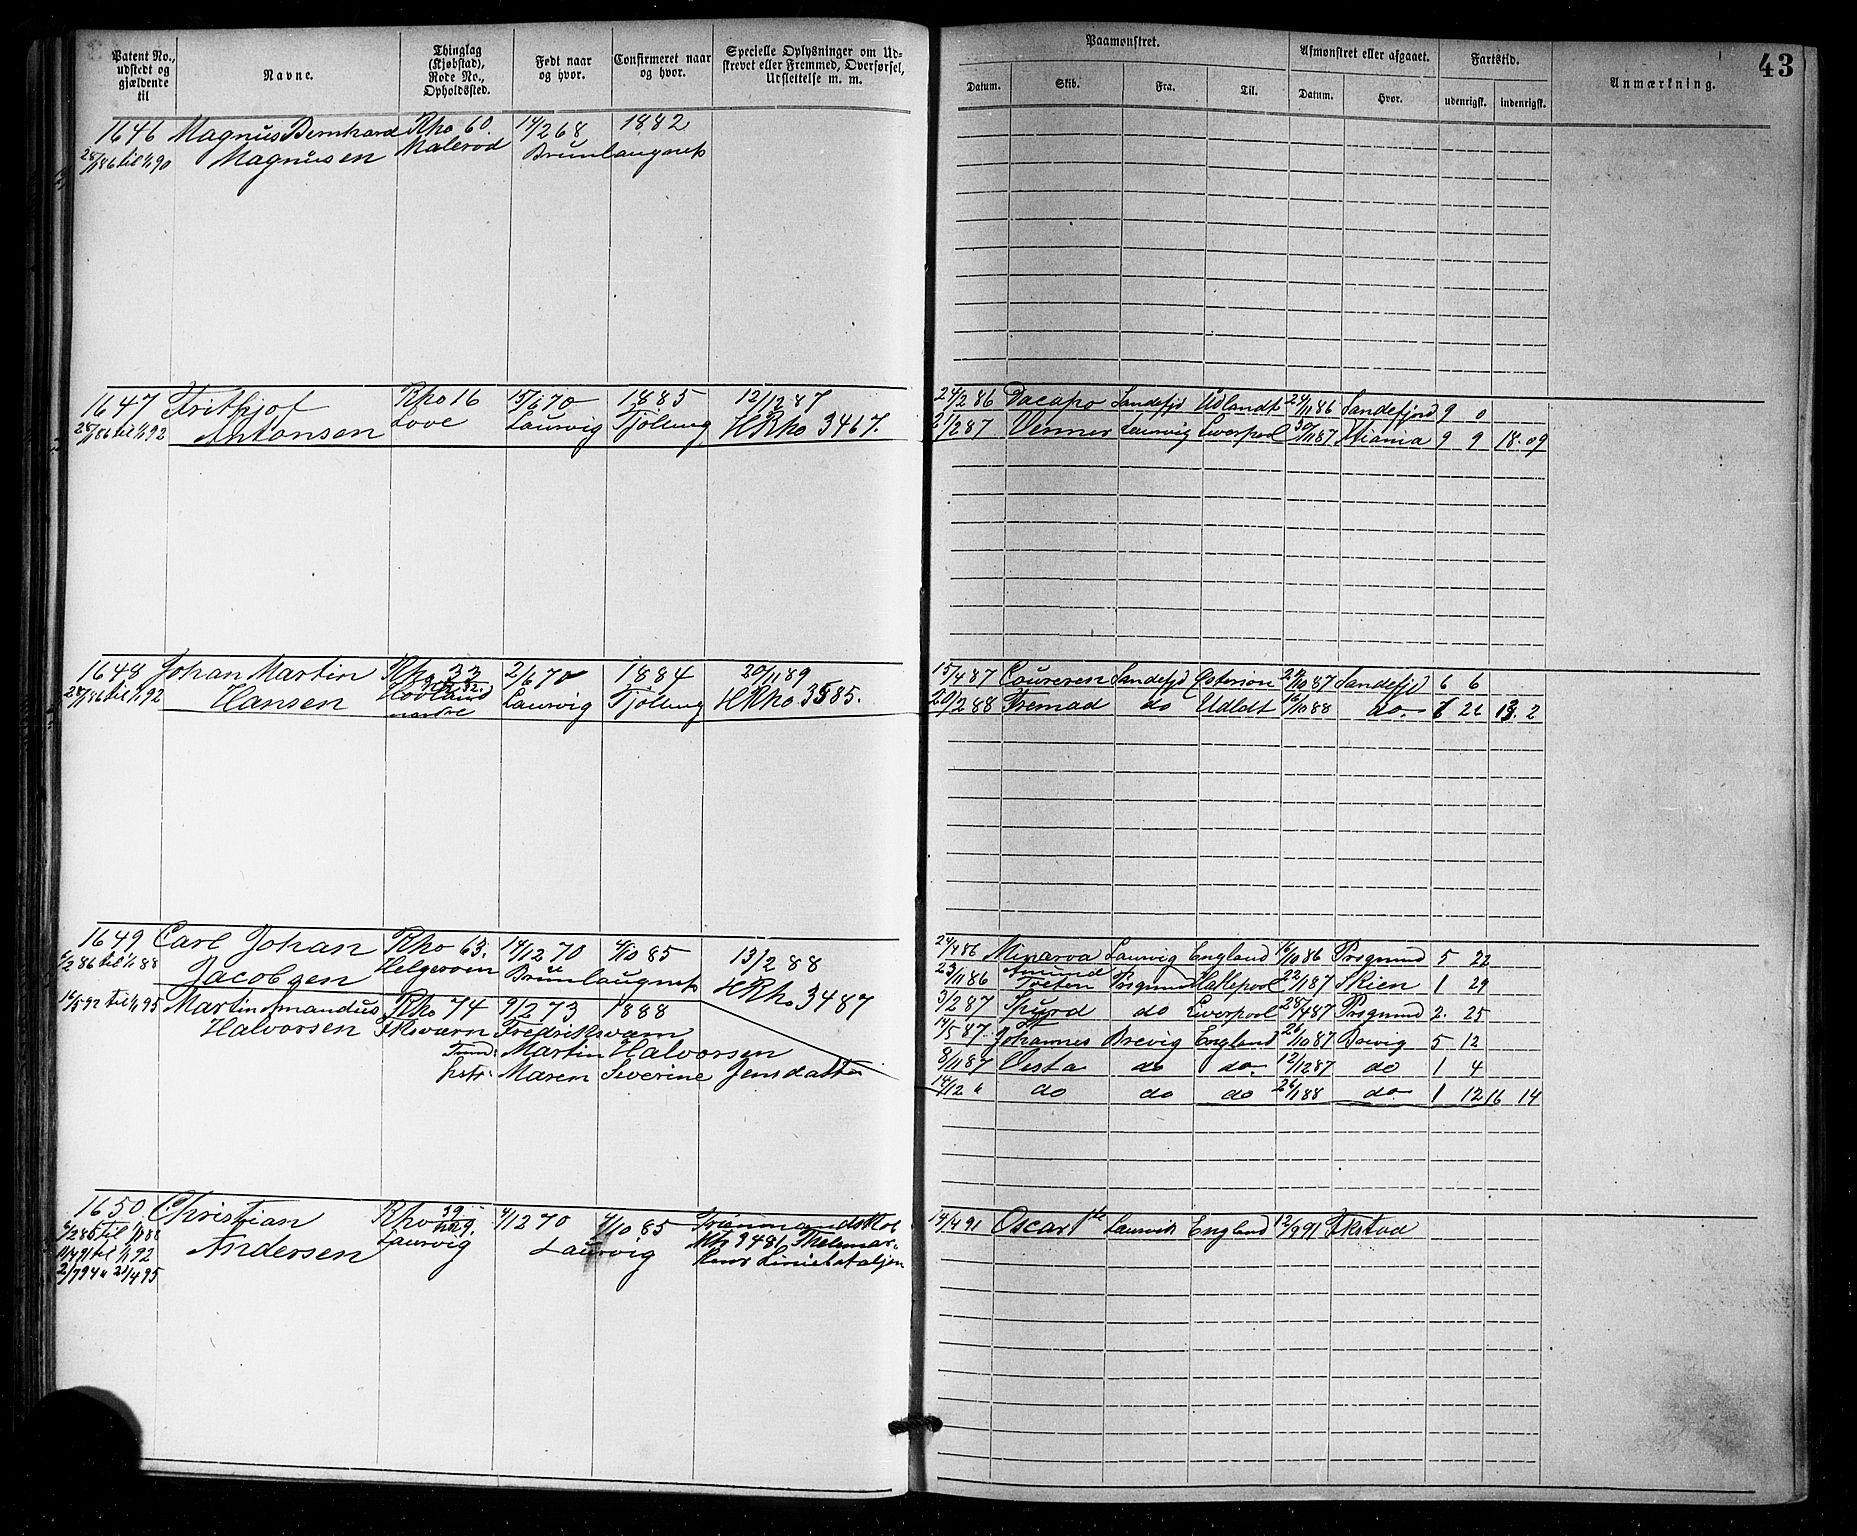 43
Patent No., udstedt og gjældende til
Navne.
Thinglag (Kjøbstad), Rode No., Opholdssted.
Født naar og hvor.
Confirmeret naar og hvor.
Specielle Oplysninger om Udskrevet eller Fremmed, Overførsel, Udslettelse m. m.
Paamønstret.
Afmønstret eller afgaaet.
Fartstid.
Anmærkning.
Datum. Skib. Fra. Til. Datum. Hvor. udenrigsk. indenrigsk.
1646 Magnus Bernhard Rho 60. 14/2 68 1882
28/1 86 til 1/1 90 Magnusen Malerød Brunlaugnæs
1647 Frithjof Rho 16 15/6 70 1885 12/12 87
28/1 86 til 1/1 92 Antonsen Love Laurvig Tjølling HRho 3467.
24/2 86 Dacapo Sandefjd Udlandt 24/11 86 Sandefjord 9 0
2 87 Laurvig Liverpool 30/11 87 9 9 18. 09
1648 Johan Martin Rho 33 2/6 70 1884 20/1 89
28/1 86 til 1/1 92 Hansen Hovland nordre Laurvig Tjølling HRho 3585.
15/4 87 Sandefjd 10 87 Sandefjd 6 6
20/2 88 Fremad do Udldt 10 88 do 6 13. 2
1649 Carl Johan Rho 63. 14/12 70 4/10 85 13/2 88
6/2 86 til 1/1 88 Jacobsen Helgeroen Brunlaugnæs HRho 3487
24/4 86 Minarva Laurvig England 16/10 86 Prsgrund 5 22
23/11 86 Amund Prsgrund 22/1 87 Skien 1 29
3/2 87 do Liverpool 28/4 87 Prsgrund 2. 25
14/5 87. Johannes Brevig England 26/10 87 Brevig 5 12
8/11 87 Vesta do do 12/12 87 do 1 4
14/12 " do do do 26/1 88 do 1 12 16 14
14/5 92 til 1/1 95 Martin Amandus Rho 74 9/2 73 1888
Halvorsen Fksværn Fredriksværn
Martin Halvorsen
Maren Severine Jensdatter
1650. Christian Rho 39 4/12 70 4/10 85
6/2 86 til 1/1 88 Andersen Laurvig Laurvig
11/4 91 til 1/1 92
2/7 94 " 21/4 95
3481 Thelemar-
14/4 91 Oscar 1ste Laurvik England 12/9 91 Fkstad